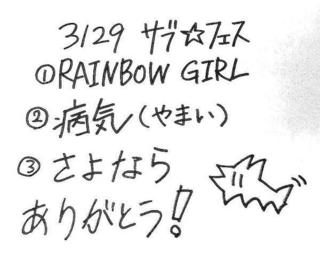 3/29 サブ☆フェス
①RAINBOW GIRL
②病気(やまい)
③さよなら
ありがとう!